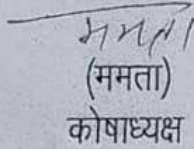 ममता
(ममता)
कोषाध्यक्ष